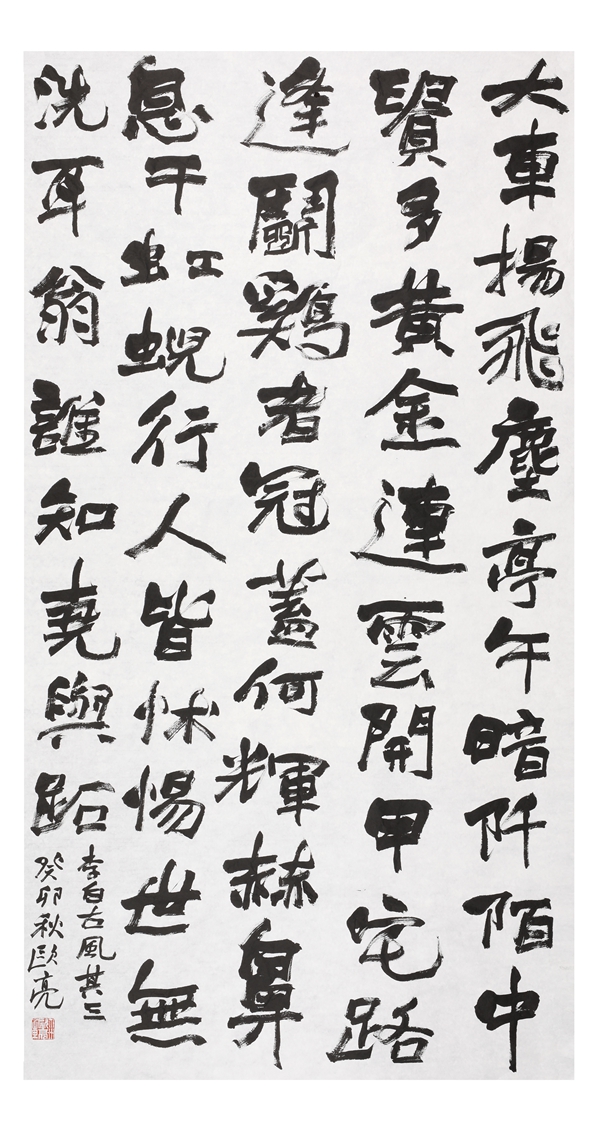 大車揚飛塵亭午暗阡陌中
貴多黃金連雲開甲宅路
逢鬭鷄者冠蓋何輝赫鼻
息干虹蜺行人皆怵惕世無
洗耳翁誰知堯與跖
李白古風其三
癸卯秋欧亮